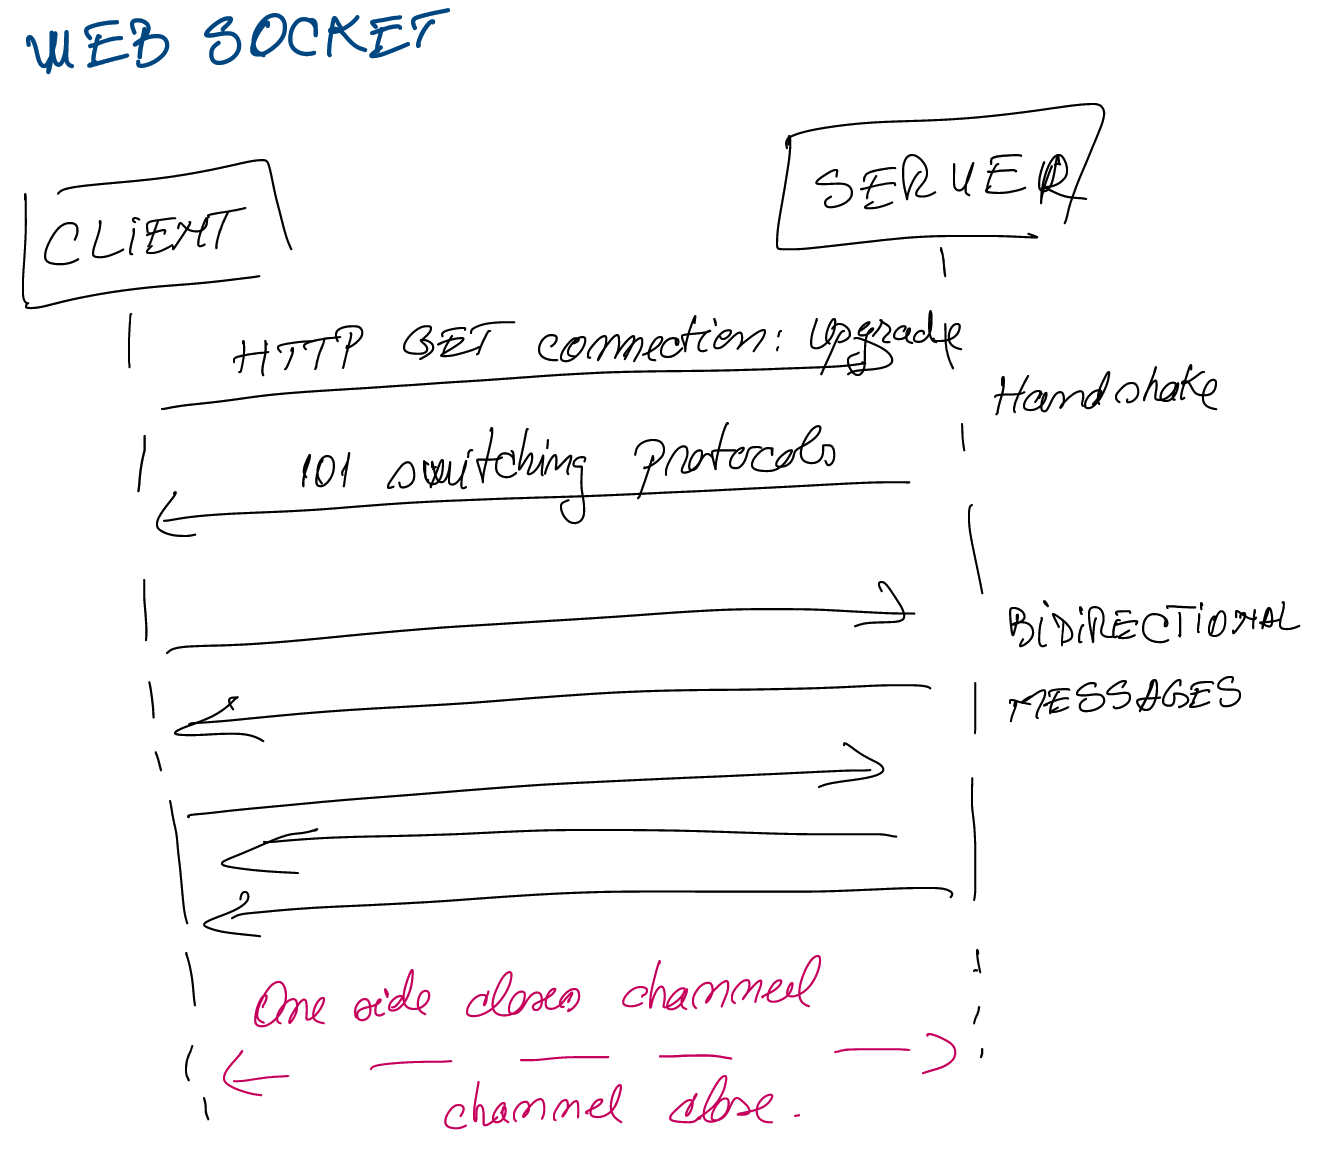 WEB SOCKET
SERVER
CLiENT
HTTP GET connection: Upgrade
Handshake
101 switching protocols
BiDiRECTiONAL
MESSAGES
One side closes channel
channel close.